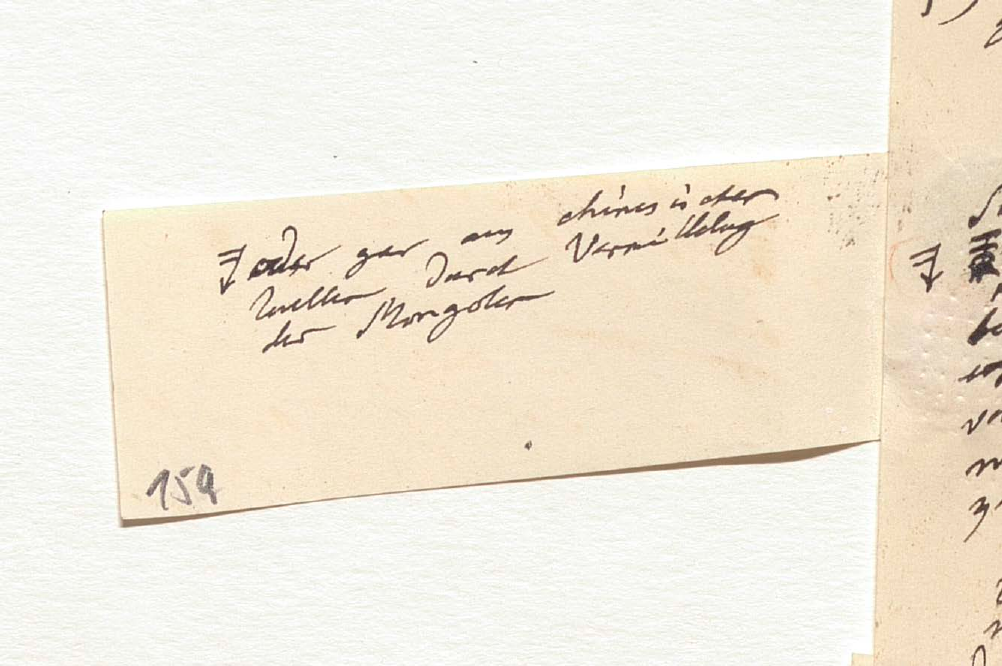 oder gar aus chinesischer
Quellen durch Vermittlung
der Mongolen
154